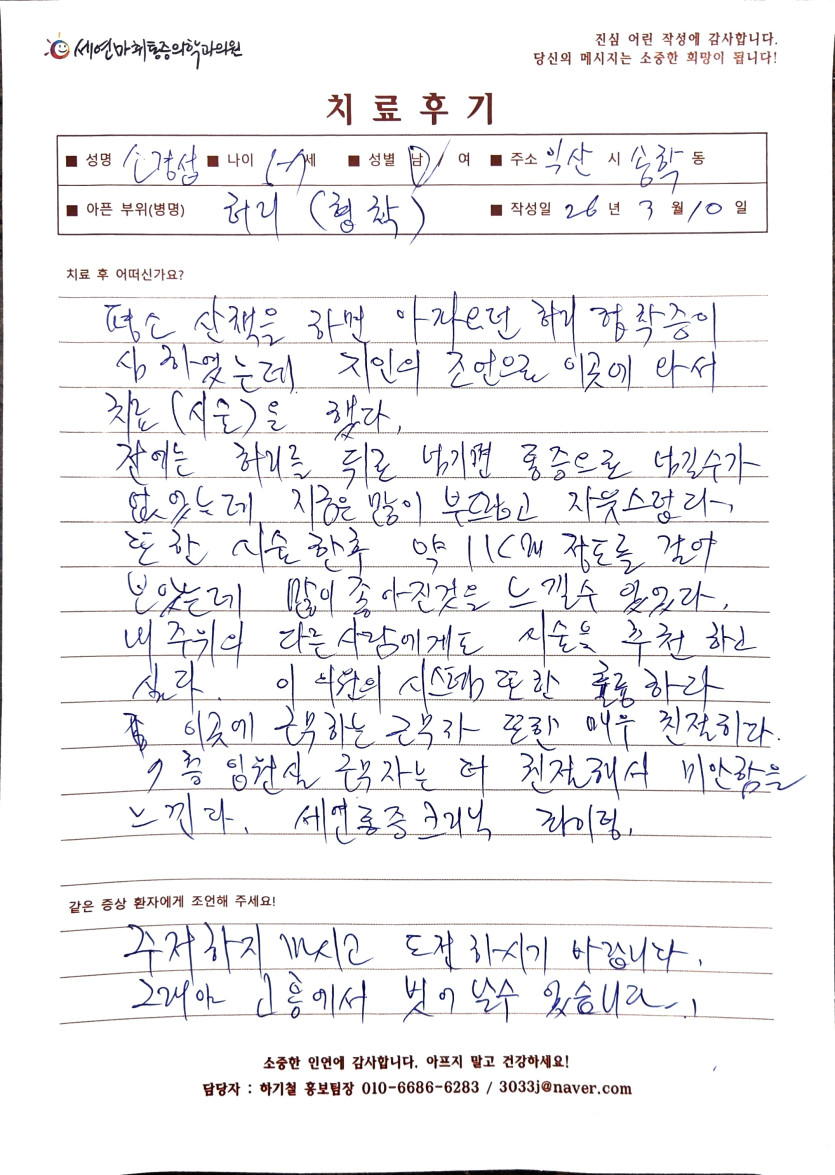 세연마취통증의학과의원
진심 어린 작성에 감사합니다.
당신의 메시지는 소중한 희망이 됩니다!
치료후기
■ 성명 경섭 ■ 나이 세 ■ 성별 남 / 여 ■ 주소 익산 시 송학 동
■ 아픈 부위(병명) 허리 (협착) ■ 작성일 26 년 3 월 10 일
치료 후 어떠신가요?
평소 산책을 하면 허리 협착증이
심하였는데 지인의 조언으로 이곳에 와서
치료(시술)을 했다.
전에는 허리를 뒤로 넘기면 통증으로 넘길수가
없었는데 지금은 많이 부드럽고
또한 시술한후 약 11Km 정도를 걸어
보았는데 많이 좋아진것을 느낄수 있었다.
내 주위의 다른 사람에게도 시술을 추천 하고
싶다. 이 의원의 시스템 또한 훌륭하다
이곳에 근무하는 근무자 또한 매우 친절하다.
9층 입원실 근무자는 더 친절해서 미안함을
느낀다. 세연통증크리닉 화이팅.
같은 증상 환자에게 조언해 주세요!
주저하지 마시고 도전하시기 바랍니다.
그래야 고통에서 벗어날수 있습니다.
소중한 인연에 감사합니다. 아프지 말고 건강하세요!
담당자 : 하기철 홍보팀장 010-6686-6283 / 3033j@naver.com